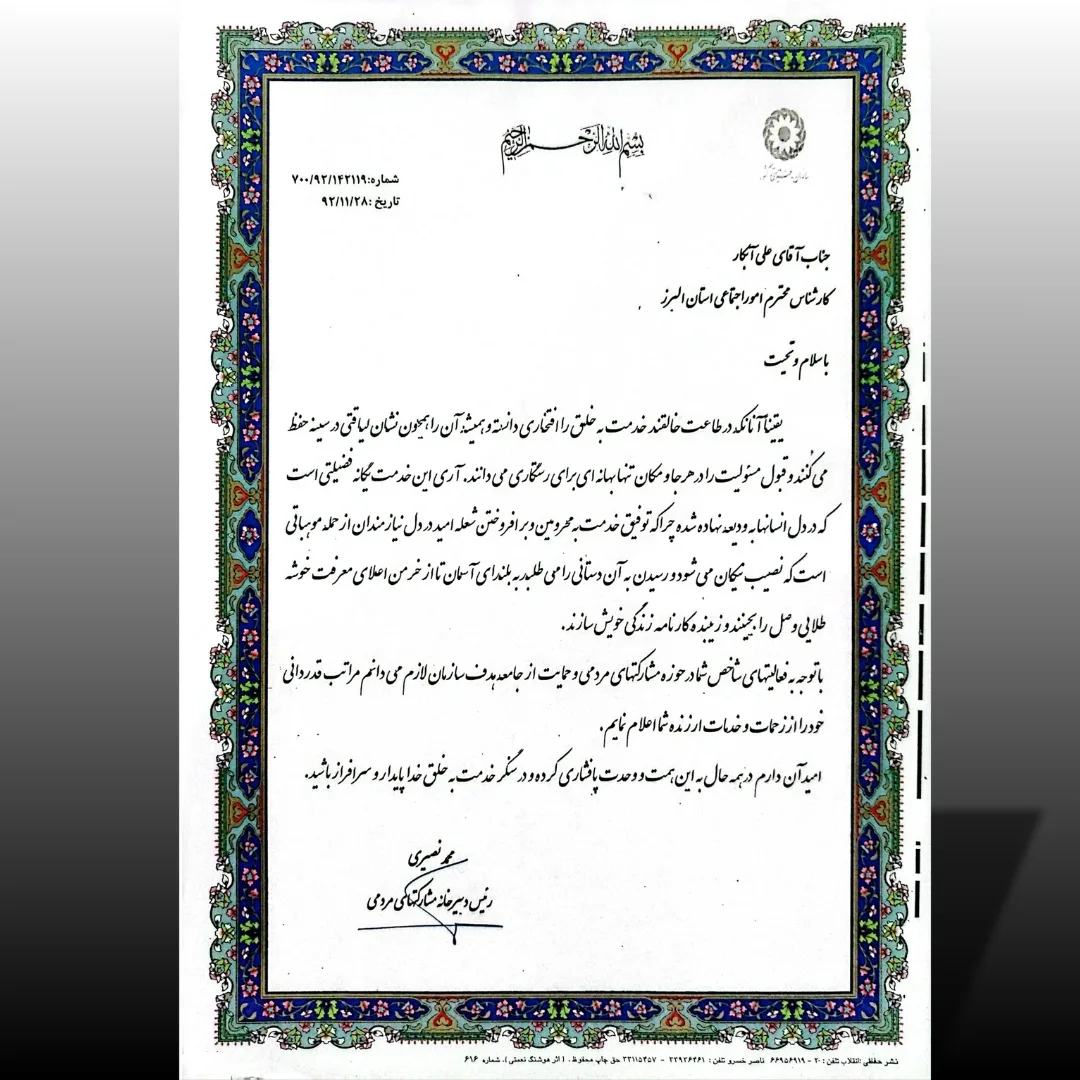 بسم الله الرحمن الرحیم
شماره:۷۰۰/۹۲/۱۴۲۱۱۹
تاریخ :۹۲/۱۱/۲۸
جناب آقای علی آبکار
کارشناس محترم امور اجتماعی استان البرز
با سلام و تحیت
یقیناً آنانکه در طاعت خالقند خدمت به خلق را افتخاری دانسته و همیشه آن را همچون نشان لیاقتی در سینه حفظ
می کنند و قبول مسئولیت را در هر جا و مکان تنها بهانه ای برای رستگاری می دانند. آری این خدمت یگانه فضیلتی است
که در دل انسانها به ودیعه نهاده شده چرا که توفیق خدمت به محرومین و بر افروختن شعله امید در دل نیازمندان از جمله موهباتی
است که نصیب نیکان می شود و رسیدن به آن دستانی را می طلبد به بلندای آسمان تا از خرمن اعلای معرفت خوشه
طلایی وصل را بچینند و زیبنده کارنامه زندگی خویش سازند.
با توجه به فعالیتهای شاخص شما در حوزه مشارکتهای مردمی و حمایت از جامعه هدف سازمان لازم می دانم مراتب قدردانی
خود را از زحمات و خدمات ارزنده شما اعلام نمایم.
امید آن دارم در همه حال به این همت و وحدت پافشاری کرده و در سنگر خدمت به خلق خدا پایدار و سرافراز باشید.
محمد نصیری
رئیس دبیرخانه مشارکتهای مردمی
نشر حفظی :انقلاب تلفن : ۲۰ - ۶۶۹۵۶۹۱۹ ناصر خسرو تلفن : ۳۳۹۲۶۲۶۱ - ۳۳۱۱۵۴۵۷ حق چاپ محفوظ . ( اثر هوشنگ نعمتی ). شماره ۶۱۶